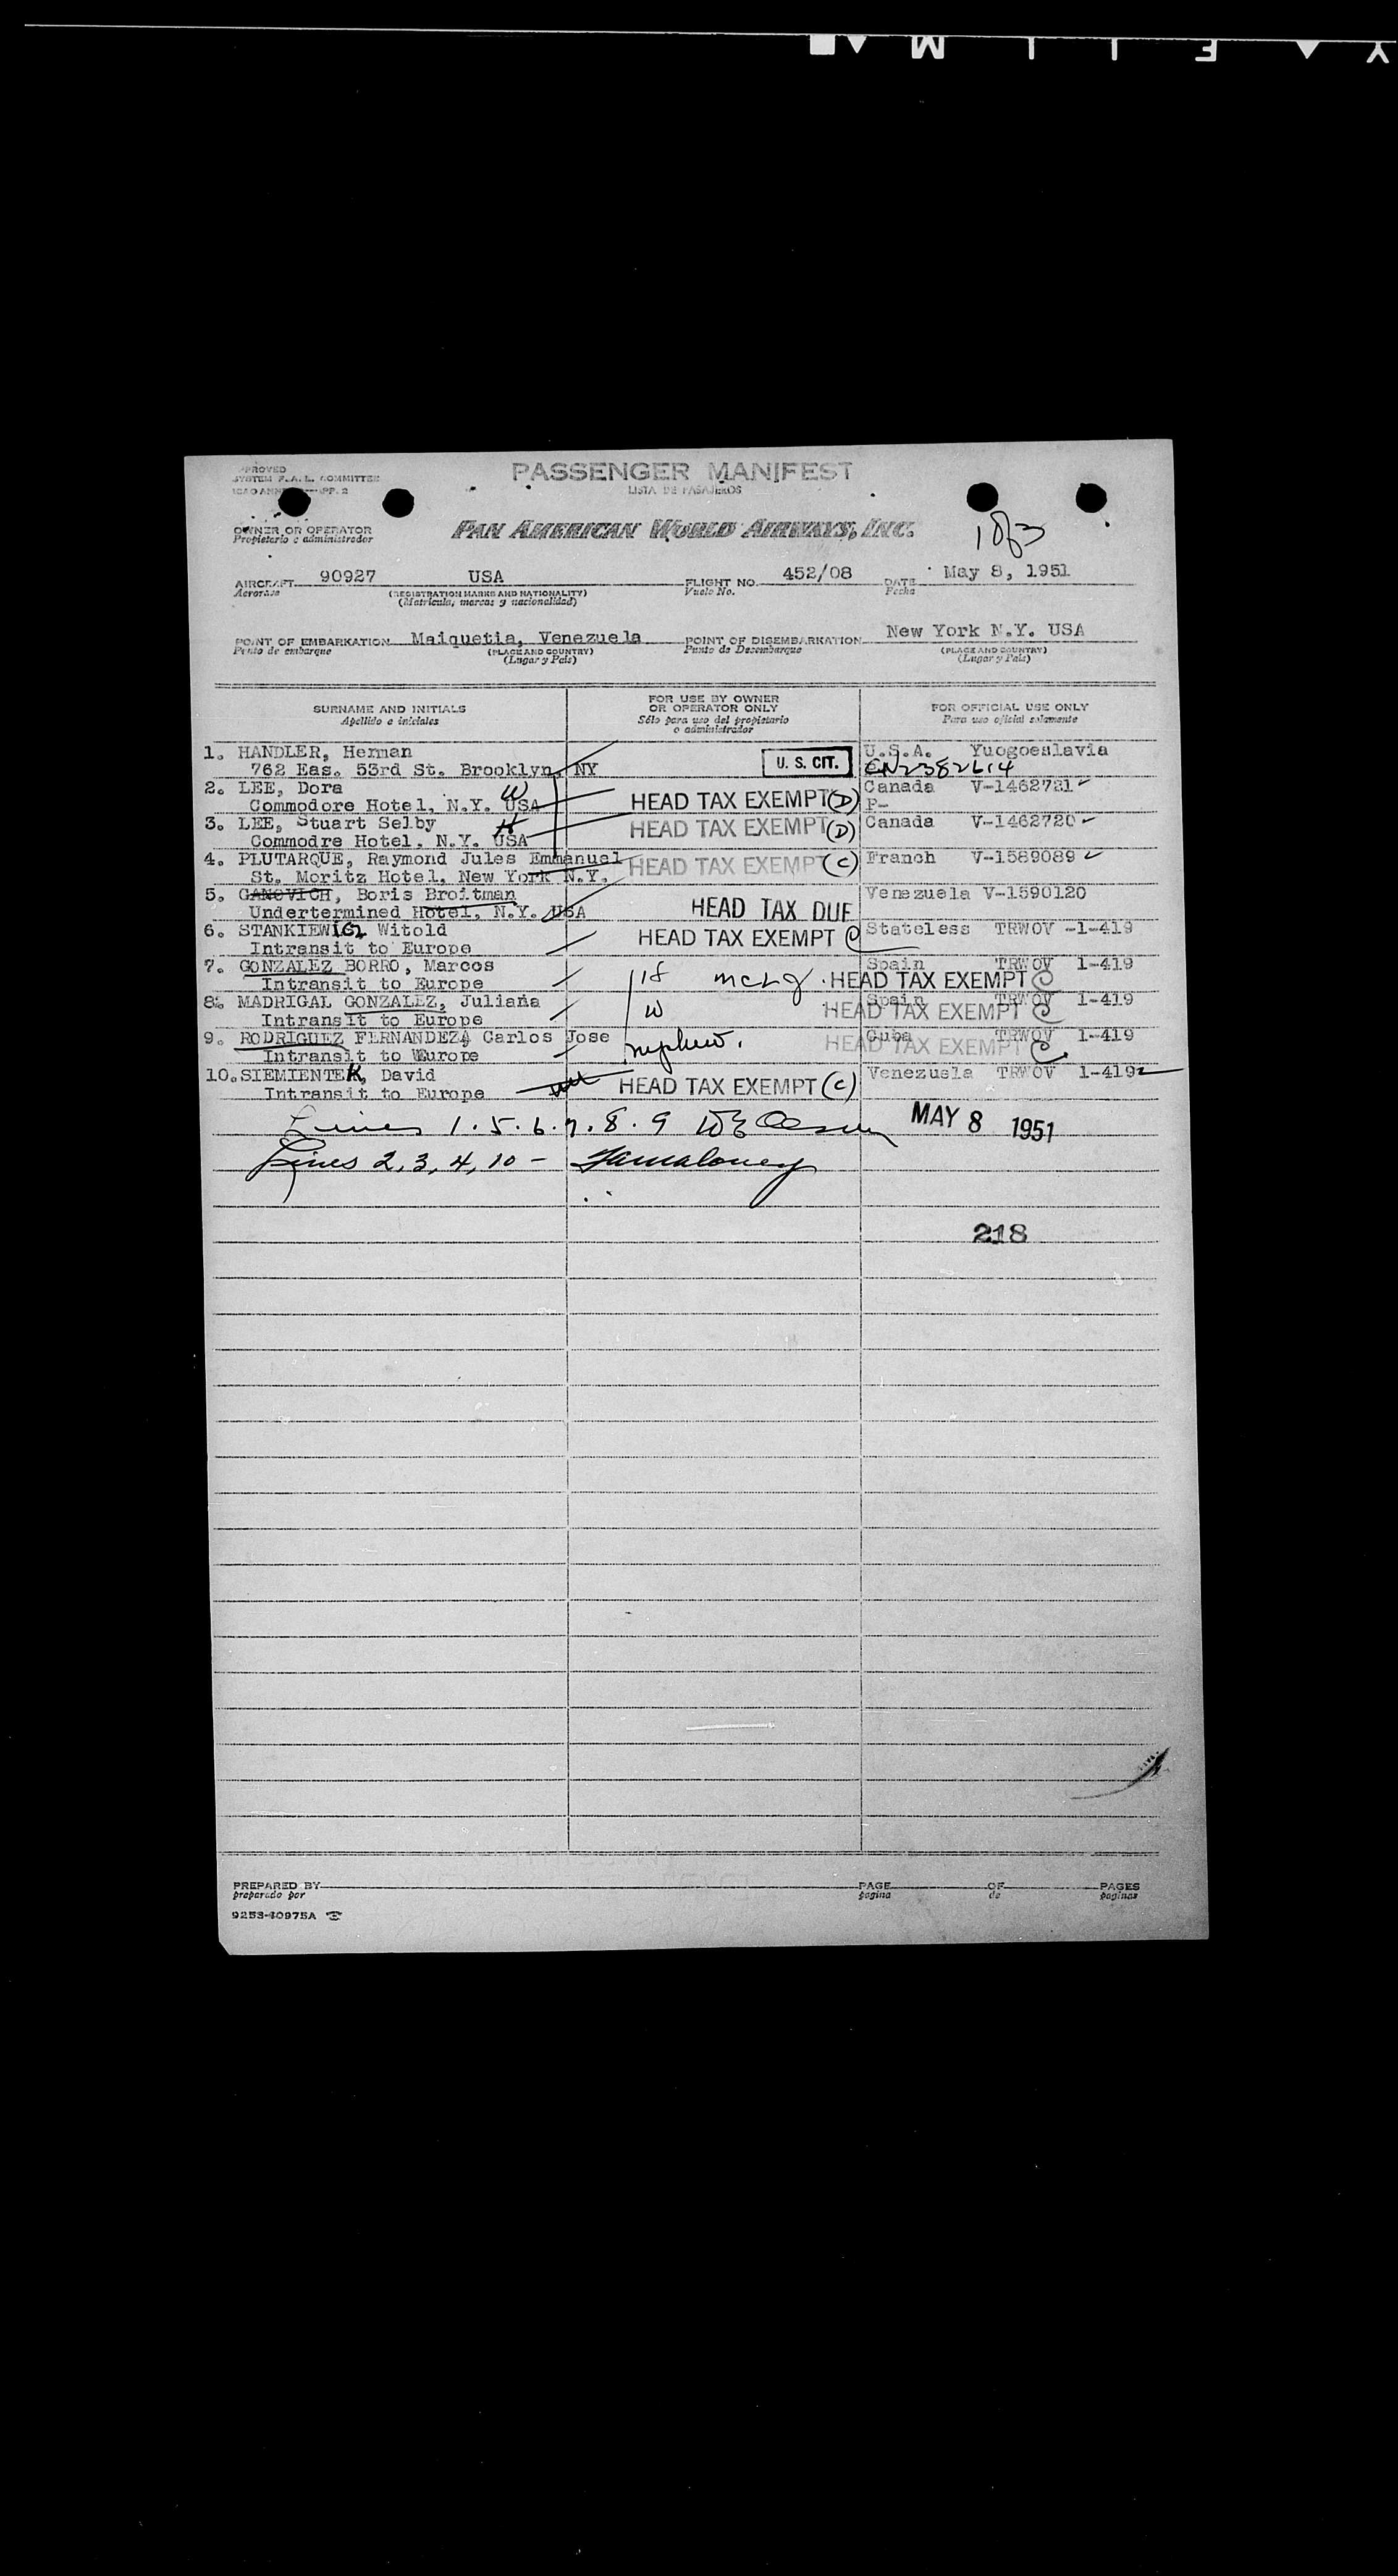 PASSENGER MANIFEST
LISTA DE PASAJEROS
SYSTEM F.A.L. COMMITTEE
OWNER OR OPERATOR
Propietario o administrador
PAN AMERICAN WORLD AIRWAYS, INC.
1 of 3
AIRCRAFT 90927 USA FLIGHT NO. 452/08 DATE May 8, 1951
Aeronave (REGISTRATION MARKS AND NATIONALITY) Vuelo No. Fecha
(Matricula, marcas y nacionalidad)
POINT OF EMBARKATION Maiquetia, Venezuela POINT OF DISEMBARKATION New York N.Y. USA
Punto de embarque (PLACE AND COUNTRY) Punto de Desembarque (PLACE AND COUNTRY)
(Lugar y Pais) (Lugar y Pais)
SURNAME AND INITIALS
Apellido e iniciales
FOR USE BY OWNER
OR OPERATOR ONLY
Sólo para uso del propietario
o administrador
FOR OFFICIAL USE ONLY
Para uso oficial solamente
1. HANDLER, Herman U.S.A. Yuogoeslavia
762 Eas. 53rd St. Brooklyn, NY U. S. CIT. CN2382614
2. LEE, Dora W Canada V-1462721
Commodore Hotel, N.Y. USA HEAD TAX EXEMPT (D) P-
3. LEE, Stuart Selby H Canada V-1462720
Commodre Hotel. N.Y. USA HEAD TAX EXEMPT (D)
4. PLUTARQUE, Raymond Jules Emmanuel HEAD TAX EXEMPT (C) Franch V-1589089
St. Moritz Hotel, New York N.Y.
5. GANOVICH, Boris Broitman Venezuela V-1590120
Undertermined Hotel, N.Y. USA HEAD TAX DUE
6. STANKIEWICZ Witold HEAD TAX EXEMPT C Stateless TRWOV -1-419
Intransit to Europe
7. GONZALEZ BORRO, Marcos Spain TRWOV 1-419
Intransit to Europe HEAD TAX EXEMPT C
8. MADRIGAL GONZALEZ, Juliana Spain TRWOV 1-419
Intransit to Europe W HEAD TAX EXEMPT C
9. RODRIGUEZ FERNANDEZ, Carlos Jose Cuba TRWOV 1-419
Intransit to Wurope nephew. HEAD TAX EXEMPT C
10. SIEMIENTEK, David Venezuela TRWOV 1-419
Intransit to Europe HEAD TAX EXEMPT (C)
Lines 1.5.6.7.8.9 MAY 8 1951
Lines 2, 3, 4, 10 -
218
PREPARED BY PAGE OF PAGES
preparado por pagina de paginas
9253-40975A